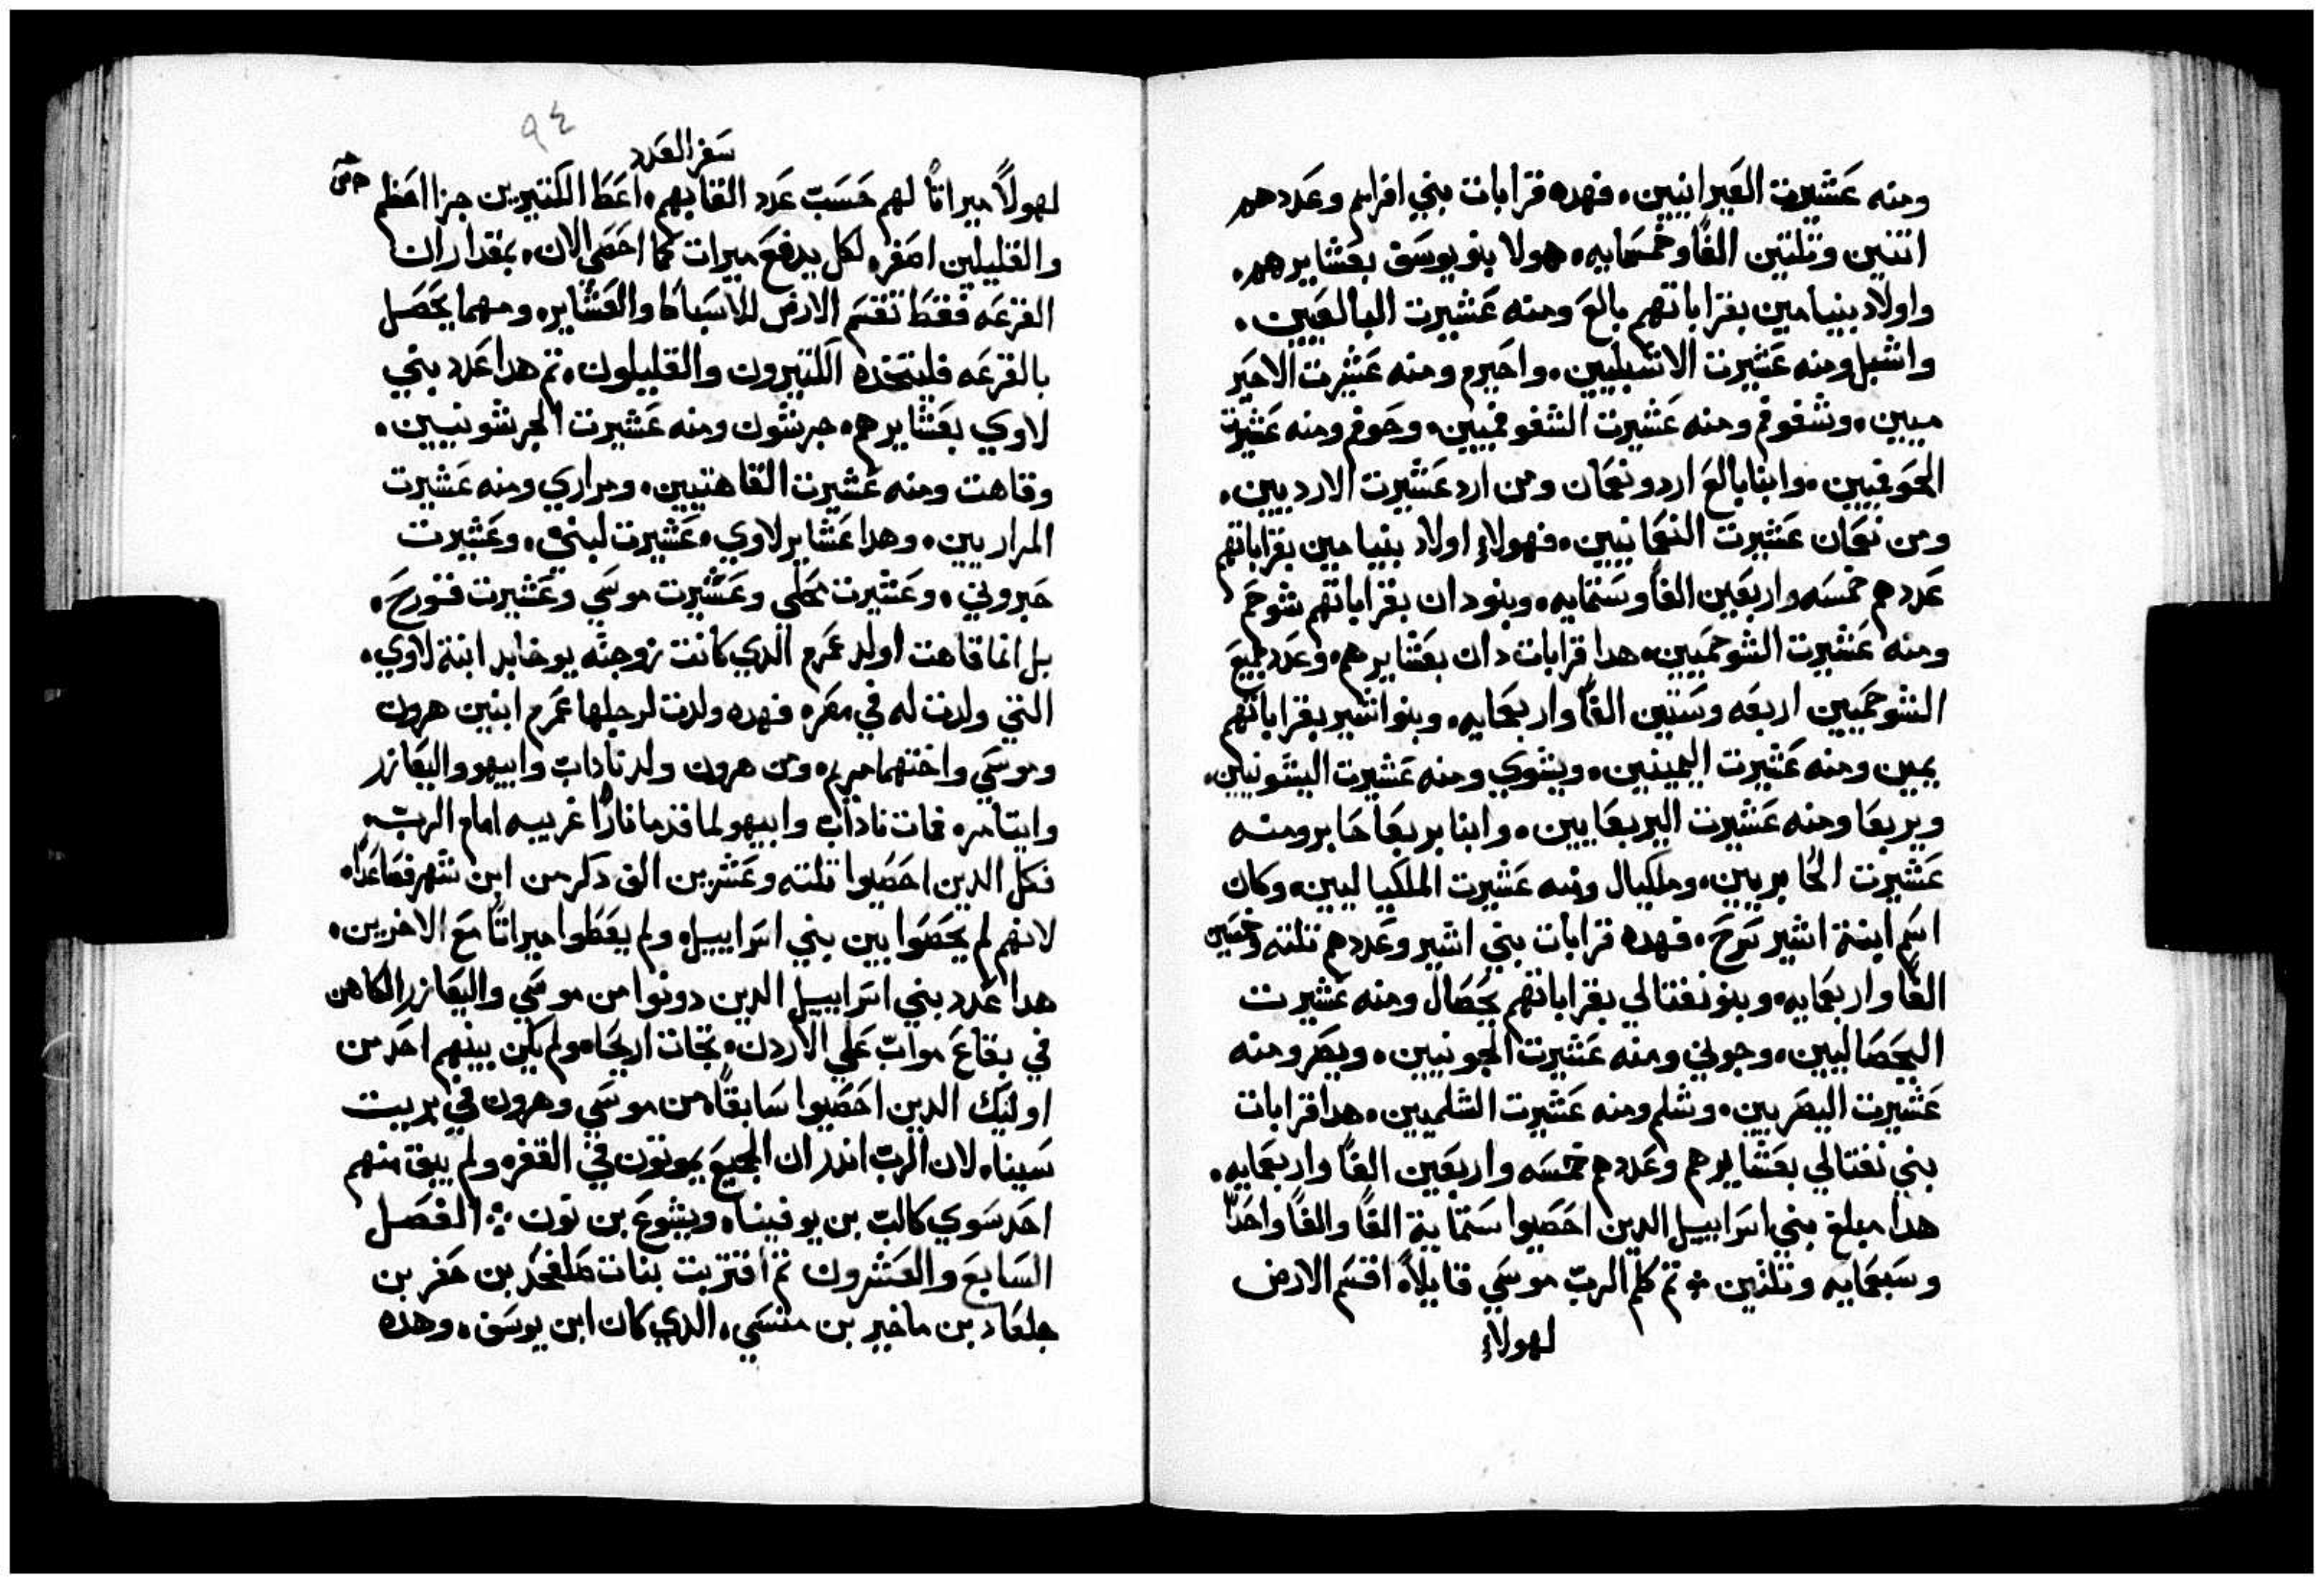 ومنه عَشيرت العَيرانيين. فهده قرابات بني افرايم وعَددهم
اتنين وتلتين الفًا وخمسَمايه. هولا بنو يوسَف بعَشايرهم.
واولاد بنيامين بقراباتهم بالعَ ومنه عَشيرت البالعَيين.
واشبل ومنه عَشيرت الاشبليين. واحَيرم ومنه عَشيرت الاحَير
ميين. وشفوفم ومنه عَشيرت الشفوفميين. وحَوفم ومنه عَشيرت
الحَوفميين. وابنا بالعَ ارد ونعَمان ومن ارد عَشيرت الارديين.
ومن نعَمان عَشيرت النعَمانيين. فهولاء اولاد بنيامين بقراباتهم
عَددهم خمسَه واربعَين الفًا وسَتمايه. وبنو دان بقراباتهم شوحَم
ومنه عَشيرت الشوحَميين. هدا قرابات دان بعَشايرهم. وعَدد جميعَ
الشوحَميين اربعَه وسَتين الفًا واربعَمايه. وبنو اشير بقراباتهم
يمين ومنه عَشيرت اليمينين. ويشوي ومنه عَشيرت اليشَونيين.
وبريعَا ومنه عَشيرت البريعَايين. وابنا بريعَا حَابر ومنه
عَشيرت الحَابريين. وملكيال ومنه عَشيرت الملكياليين. وكان
اسَم ابنة اشير سَرحَ. فهده قرابات بني اشير وعَددهم تلته وخمسَين
الفًا واربعَمايه. وبنو نفتالي بقراباتهم يحَصَال ومنه عَشيرت
اليحَصَاليين. وجوني ومنه عَشيرت الجونيين. ويصَر ومنه
عَشيرت اليصَريين. وشلم ومنه عَشيرت الشلميين. هدا قرابات
بني نفتالي بعَشايرهم وعَددهم خمسَه واربعَين الفًا واربعَمايه.
هدا مبلغ بني اسَراييل الدين احَصَيوا سَتماية الفًا والفًا واحَدًا
وسَبعَمايه وتلتين ⁘ تم كلم الربّ موسَي قايلًا. اقسَم الارض
لهولاء
٩٤
سَفر العَدد
لهولاً ميراتًا لهم حَسَبَ عَدد القابهم. اعَطَ الكتيرين جزا اعَظم
والقليلين اصَغر. لكل يدفعَ ميرات كما احَصَي الان. بمقدار ان
القرعَه فقطَ تقسَم الارض للاسَباطَ والعَشاير. ومهما يحَصَل
بالقرعَه فليتخده الكتيرون والقليلون. تم هدا عَدد بني
لاوي بعَشايرهم. جرشون ومنه عَشيرت الجرشونيين.
وقاهت ومنه عَشيرت القاهتيين. ومراري ومنه عَشيرت
المراريين. وهدا عَشاير لاوي. عَشيرت لبني. وعَشيرت
حَبروني. وعَشيرت محَلي وعَشيرت موسَي وعَشيرت قورحَ.
بل انما قاهت اولد عَمرم الدي كانت زوجته يوخابد ابنة لاوي.
التي ولدت له في مصَر. فهده ولدت لرجلها عَمرم ابنين هرون
وموسَي واختهما مريم. ومن هرون ولد ناداب وابيهو واليعَازر
وايتامر. فمات ناداب وابيهو لما قدما نارًا غريبه امام الربّ.
فكل الدين احَصَيوا تلته وعَشرين الف دكر من ابن شهر فصَاعَدًا.
لانهم لم يحَصَوا بين بني اسَراييل. ولم يعَطَوا ميراتًا معَ الاخرين.
هدا عَدد بني اسَراييل الدين دونوا من موسَي واليعَازر الكاهن
في بقاعَ مواب عَلي الاردن. تجاه اريحَا. ولم يكن بينهم احَد من
اوليك الدين احَصَيوا سَابقًا من موسَي وهرون في بريت
سَينا. لان الربّ اندر ان الجميعَ يموتون في القفر. ولم يبق منهم
احَد سَوي كالب بن يوفينا. ويشوعَ بن نون ⁘ الفصَل
السَابعَ والعَشرون تم اقتربت بنات صَلفحَد بن حَفر بن
جلعَاد بن ماخير بن منسَي. الدي كان ابن يوسَف. وهده